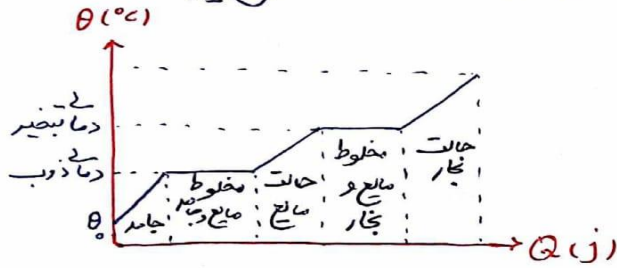 θ (°C)
دمای تبخیر
دمای ذوب
θ₀
جامد
مخلوط
مایع و جامد
حالت
مایع
مخلوط
مایع و
بخار
حالت
بخار
Q (j)